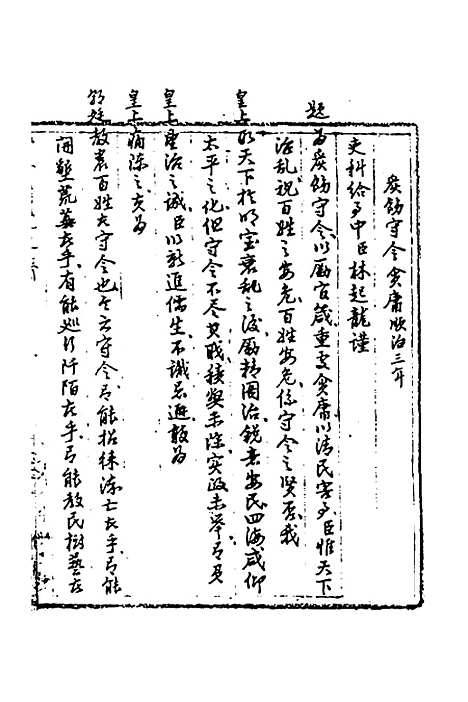 嚴飭守令貪庸順治三年
吏科給事中臣林起龍謹
題為嚴飭守令以勵官箴重支貪庸以清民害事臣惟天下
治亂視百姓之安危百姓安危係守令之賢否我
皇上取天下於明室衰亂之後勵精圖治銳意安民四海咸仰
太平之化但守令不尽其職積獘未除实政未舉有負
皇上望治之誠臣以新進儒生不識忌避敢為
皇上痛陳之夫為
朝廷教養百姓夫守令也今之守令有能招徠流亡者乎有能
開墾荒蕪者乎有能巡行阡陌者乎有能教民樹藝者